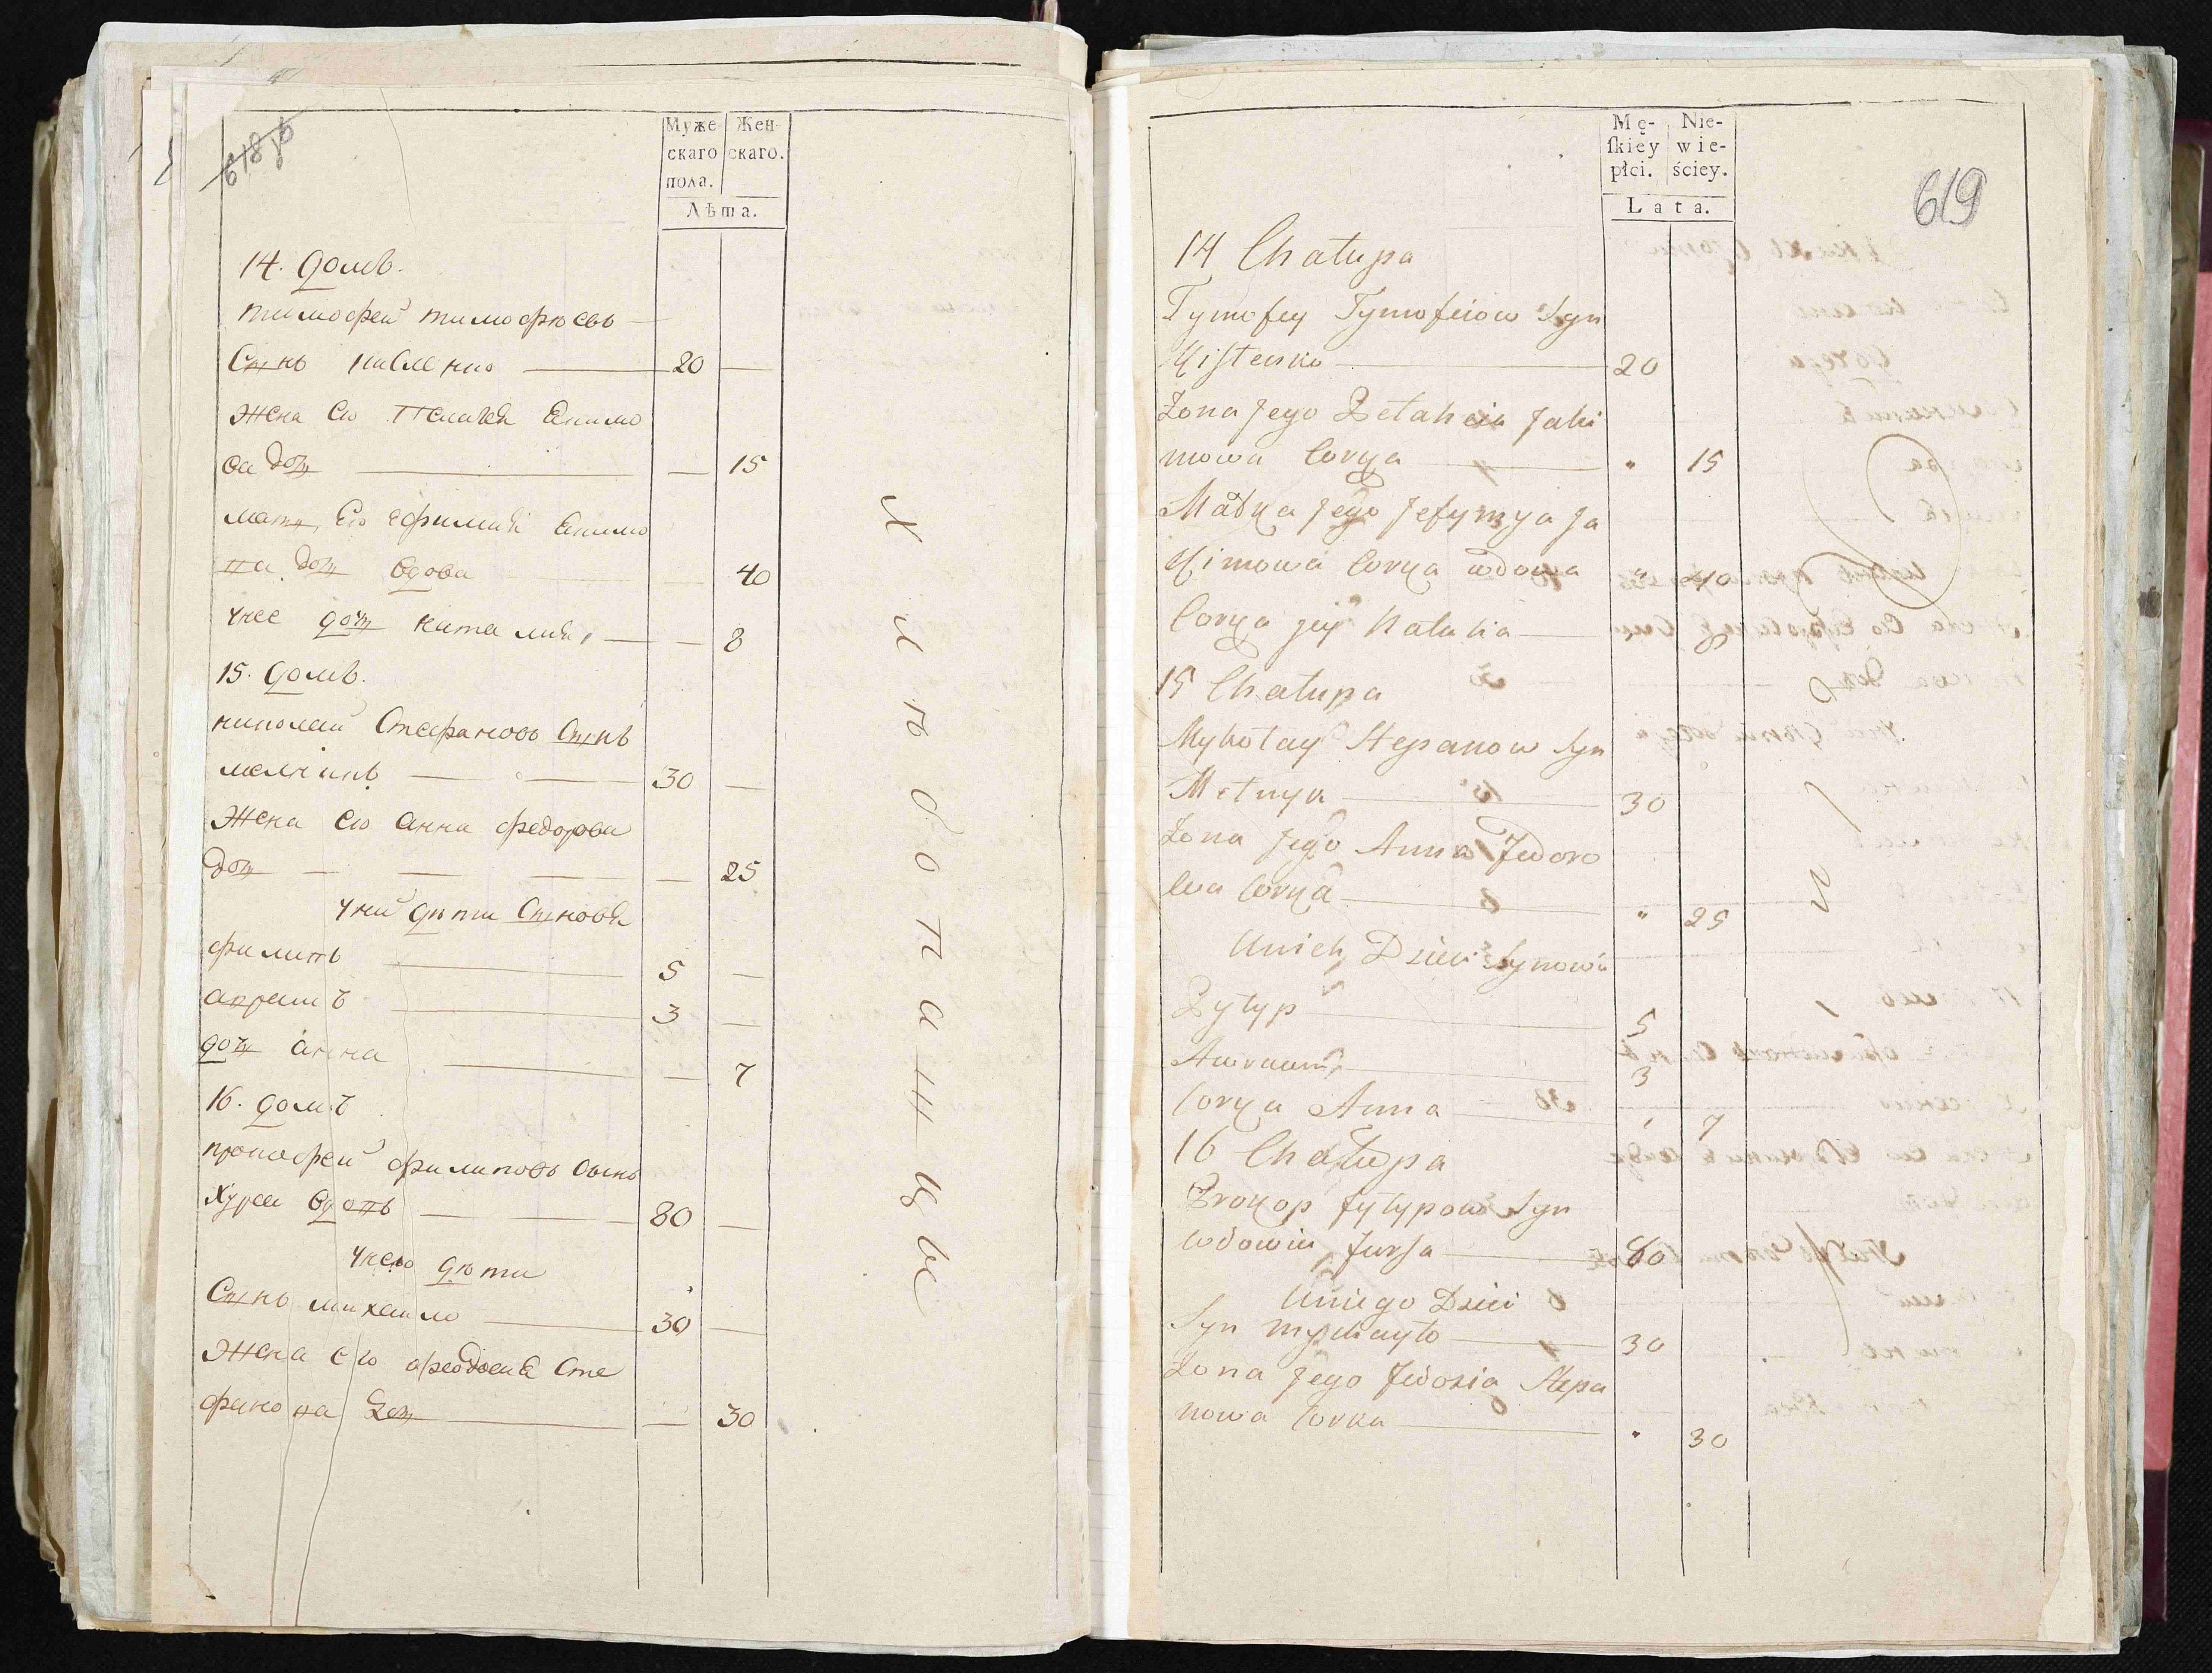 618 об
Муже- Жен-
скаго скаго.
пола.
Лѣта.
14. домъ.
тимофей тимофѣевъ
Сынъ 20 —
жена Его Пелагея Екимо
ва дочь — 15
мать Его Ефимия Екимо
ва дочь вдова — 40
унее дочь наталия — 8
15. домъ.
николай Стефановъ Сынъ
мелникъ 30 —
жена Его анна федорова
дочь — 25
уних дѣти Сыновя
филипъ 5 —
авраамъ 3 —
дочь анна — 7
16. домъ
прокофей филиповъ сынъ
Хурса вдовъ 80 —
унего дѣти
Сынъ михаило 30 —
жена его феодосия Сте
фанова дочь — 30
Хлѣбопашцы
Mę- Nie-
ſkiey wie-
płci. ściey.
Lata.
619
14 Chałupa
Tymofey Tymofeiow Syn
Kisłenko 20
Zona Jego Pełahia Jaki
mowa Corka " 15
Matka Jego Jefymya Ja
kimowa Corka wdowa " 40
Corka jey Natalia " 8
15 Chałupa
Mykołay Stepanow Syn
Melnyk 30
Zona Jego Anna Fedoro
wa Corka " 25
Unich Dzieci Synowie
Pylyp 5
Awraam 3
Corka Anna " 7
16 Chałupa
Prokop Fylypow Syn
wdowiec Fursa 80
Uniego Dzieci
Syn Mychayło 30
Zona Jego Fedosia Stepa
nowa Corka " 30